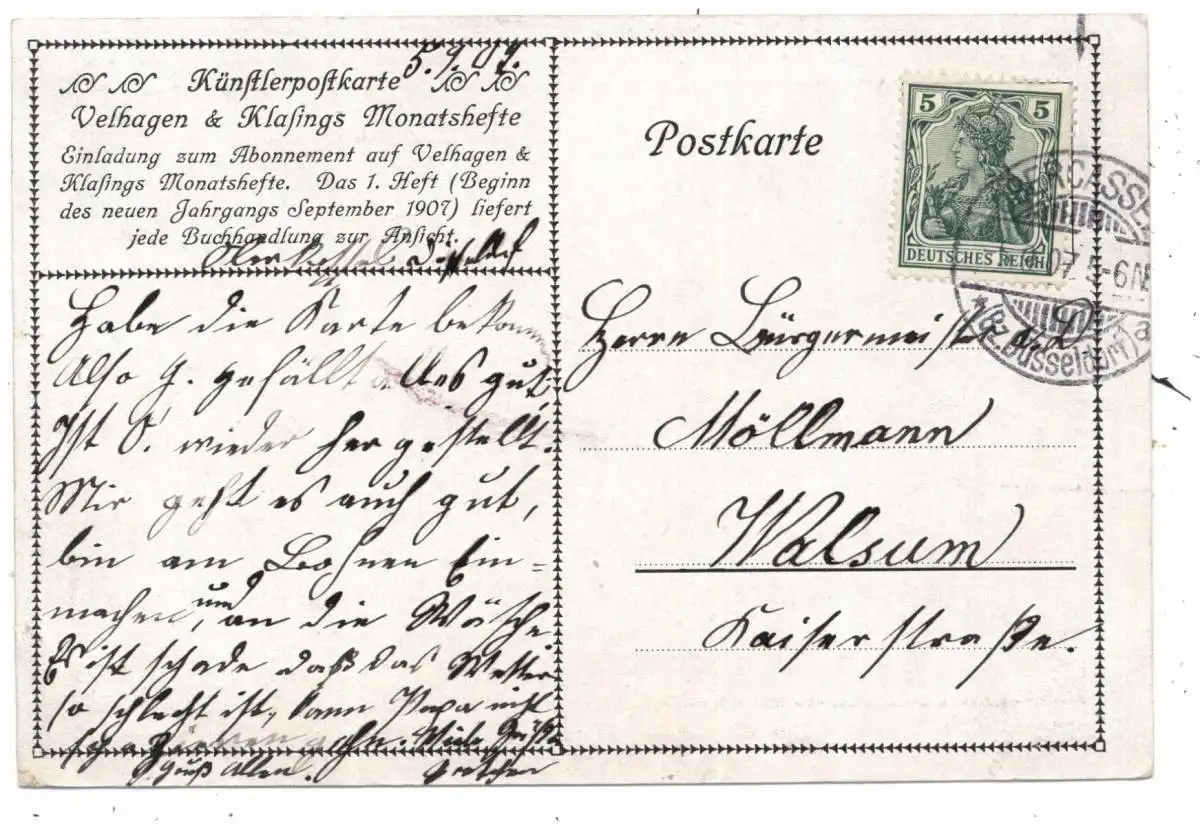 5.9.07.
Künstlerpostkarte
Velhagen & Klasings Monatshefte
Einladung zum Abonnement auf Velhagen &
Klasings Monatshefte. Das 1. Heft (Beginn
des neuen Jahrgangs September 1907) liefert
jede Buchhandlung zur Ansicht.
Habe die Karte bekomm
Also G. gefällt alles gut,
Ist S. wieder her gestellt.
Mir geht es auch gut,
bin am Bohnen Ein=
machen, und an die Wäsche
Es ist schade daß das Wetter
so schlecht ist, kann Papa nicht
gehn. Viele Grüße
Gruß Allen. Gretchen
Postkarte
5 5
DEUTSCHES REICH
ERCASSE
07 5-6N
Düsseldorf
a
Herrn Bürgermeister a.D
Möllmann
Walsum
Kaiserstraße.